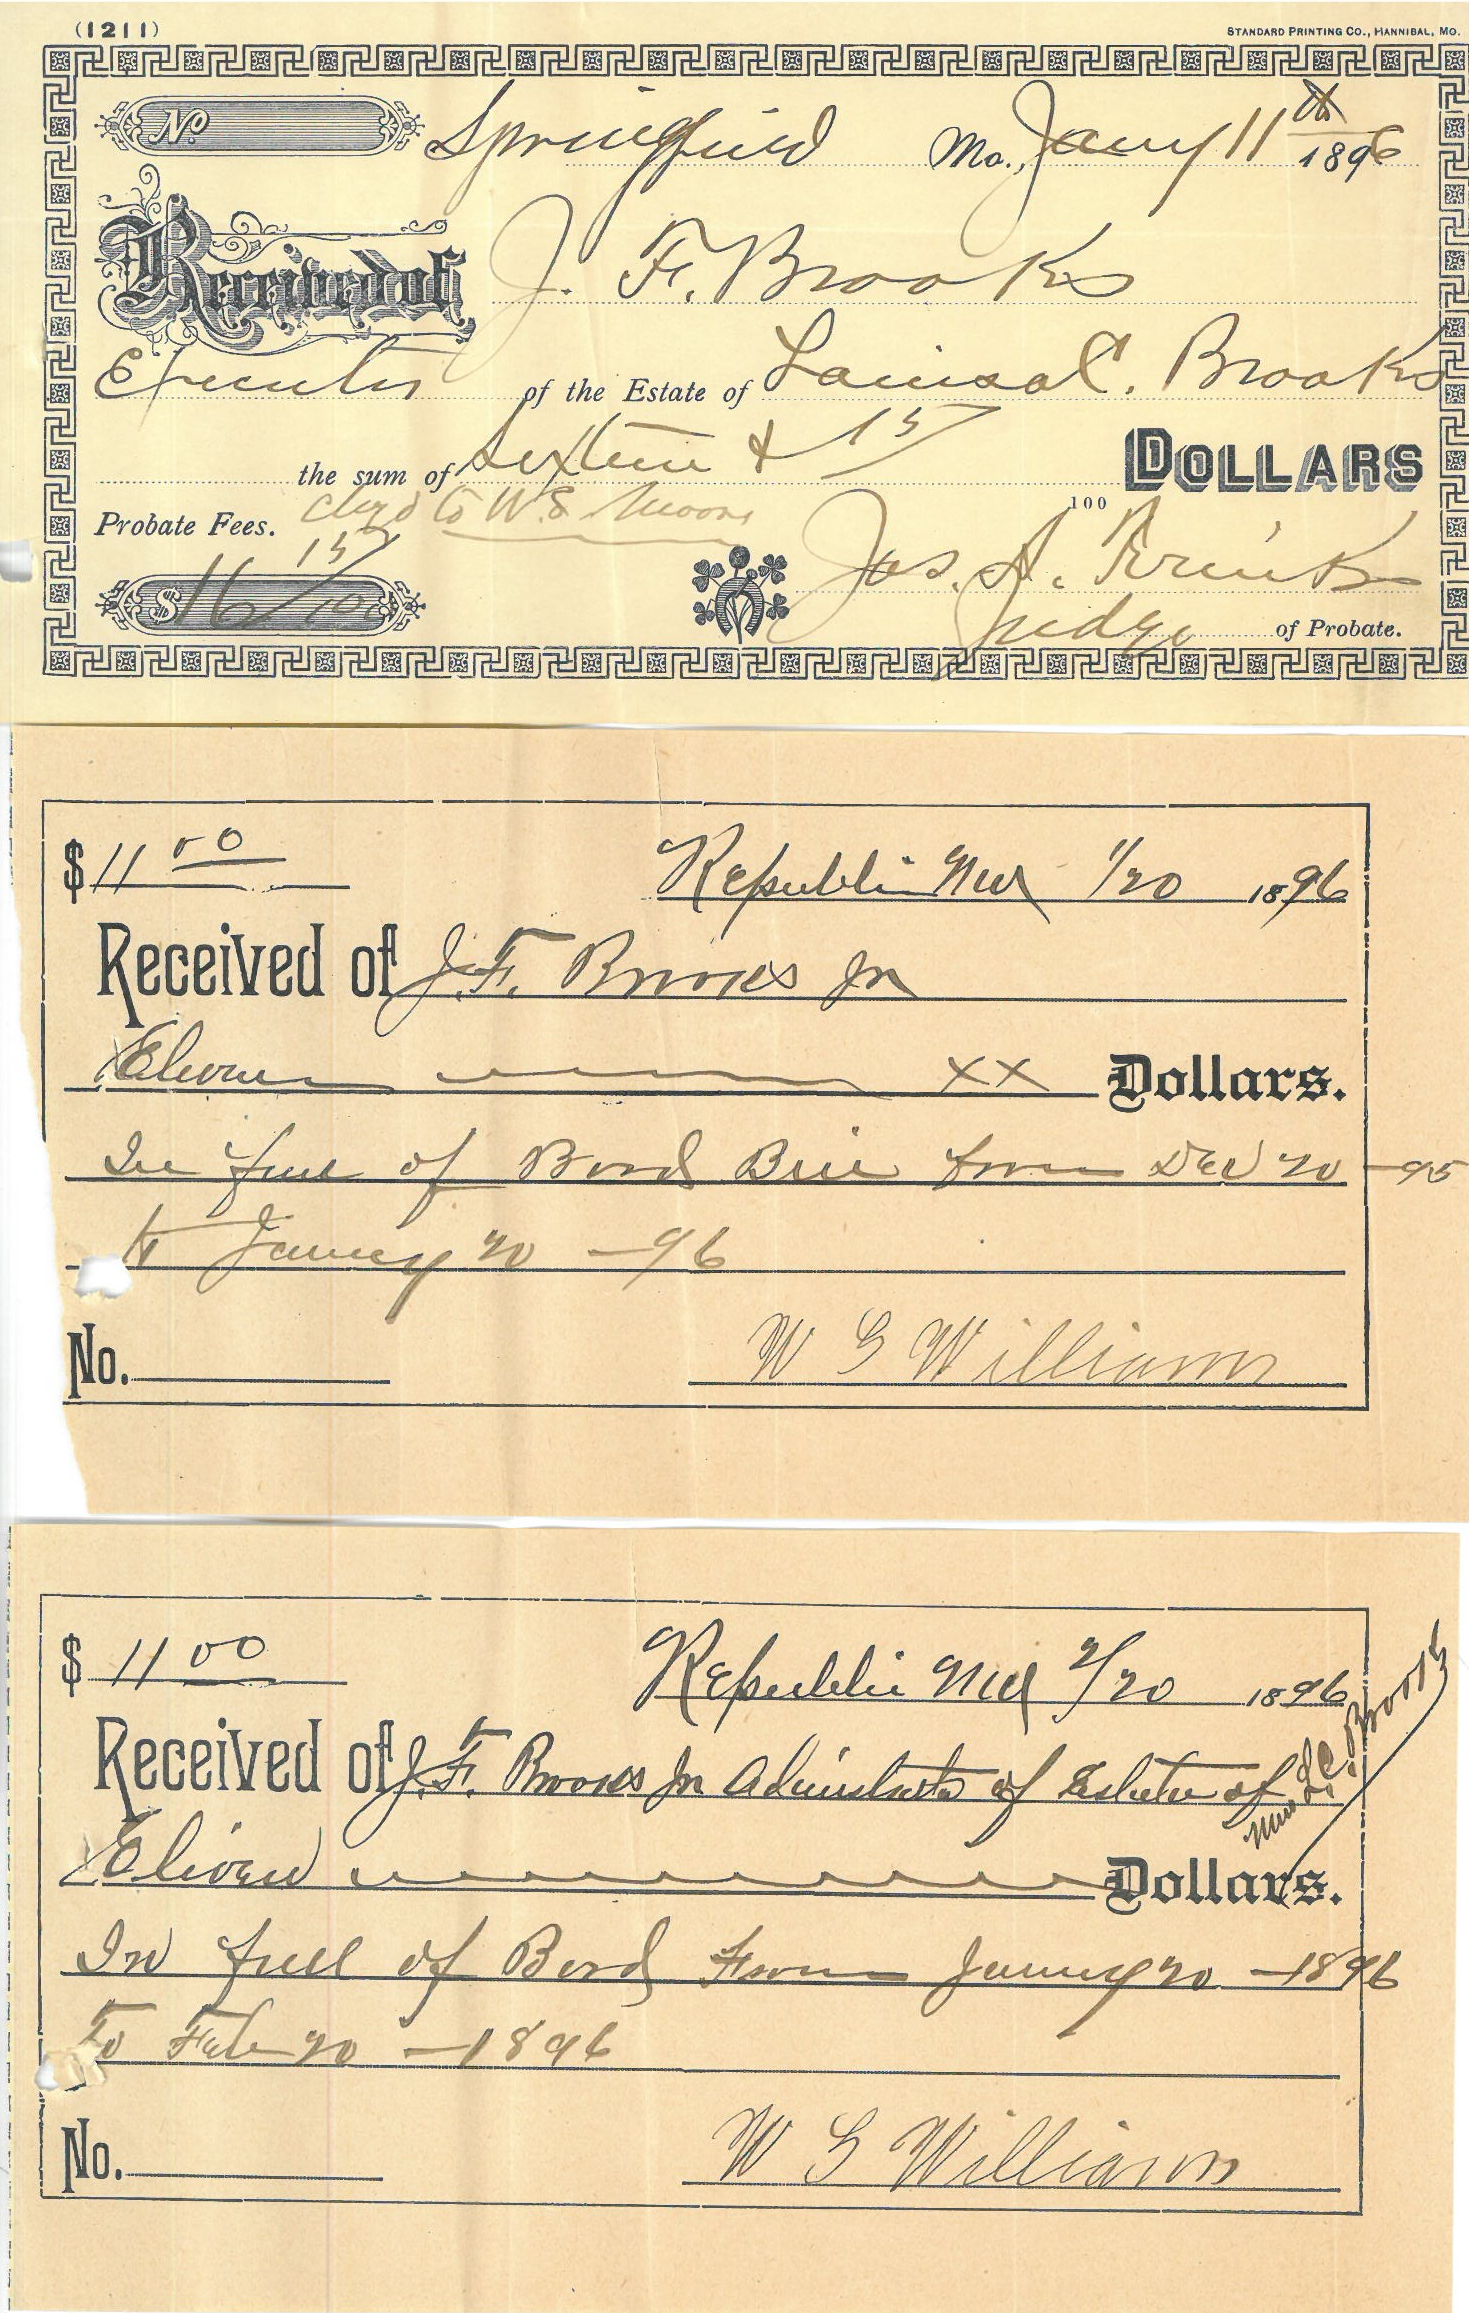 (1211)
STANDARD PRINTING CO., HANNIBAL, MO.
No Springfield Mo., Jany 11th 1896
Received of J. F. Brooks
Executor of the Estate of Louisa C. Brooks
the sum of Sixteen & 15/100 DOLLARS
Probate Fees. chgd to W.S. Moore
$16 15/100 Jas. A.
Judge of Probate.
$11 00 Republic Mo 1/20 1896
Received of J. F. Brooks Jr
Eleven xx Dollars.
In full of Bord Bill from Dec 20 - 95
to January 20 - 96
No. W G Williams
$11 00 Republic Mo 2/20 1896
Received of J. F. Brooks Jr Adminstrator of Estate of Mrs L. C. Brooks
Eleven Dollars.
In full of Bord From January 20 - 1896
To Feb 20 - 1896
No. W G Williams